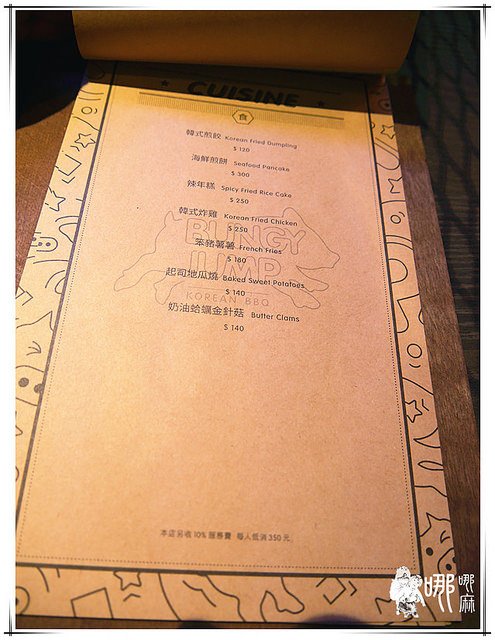 CUISINE
食
韓式煎餃 Korean Fried Dumpling
$ 120
海鮮煎餅 Seafood Pancake
$ 300
辣年糕 Spicy Fried Rice Cake
$ 250
韓式炸雞 Korean Fried Chicken
$ 250
笨豬薯薯 French Fries
$ 180
起司地瓜燒 Baked Sweet Potatoes
$ 140
奶油蛤蠣金針菇 Butter Clams
$ 140
BUNGY
JUMP
KOREAN BBQ
本店另收 10% 服務費 每人低消 350 元
哪哪麻